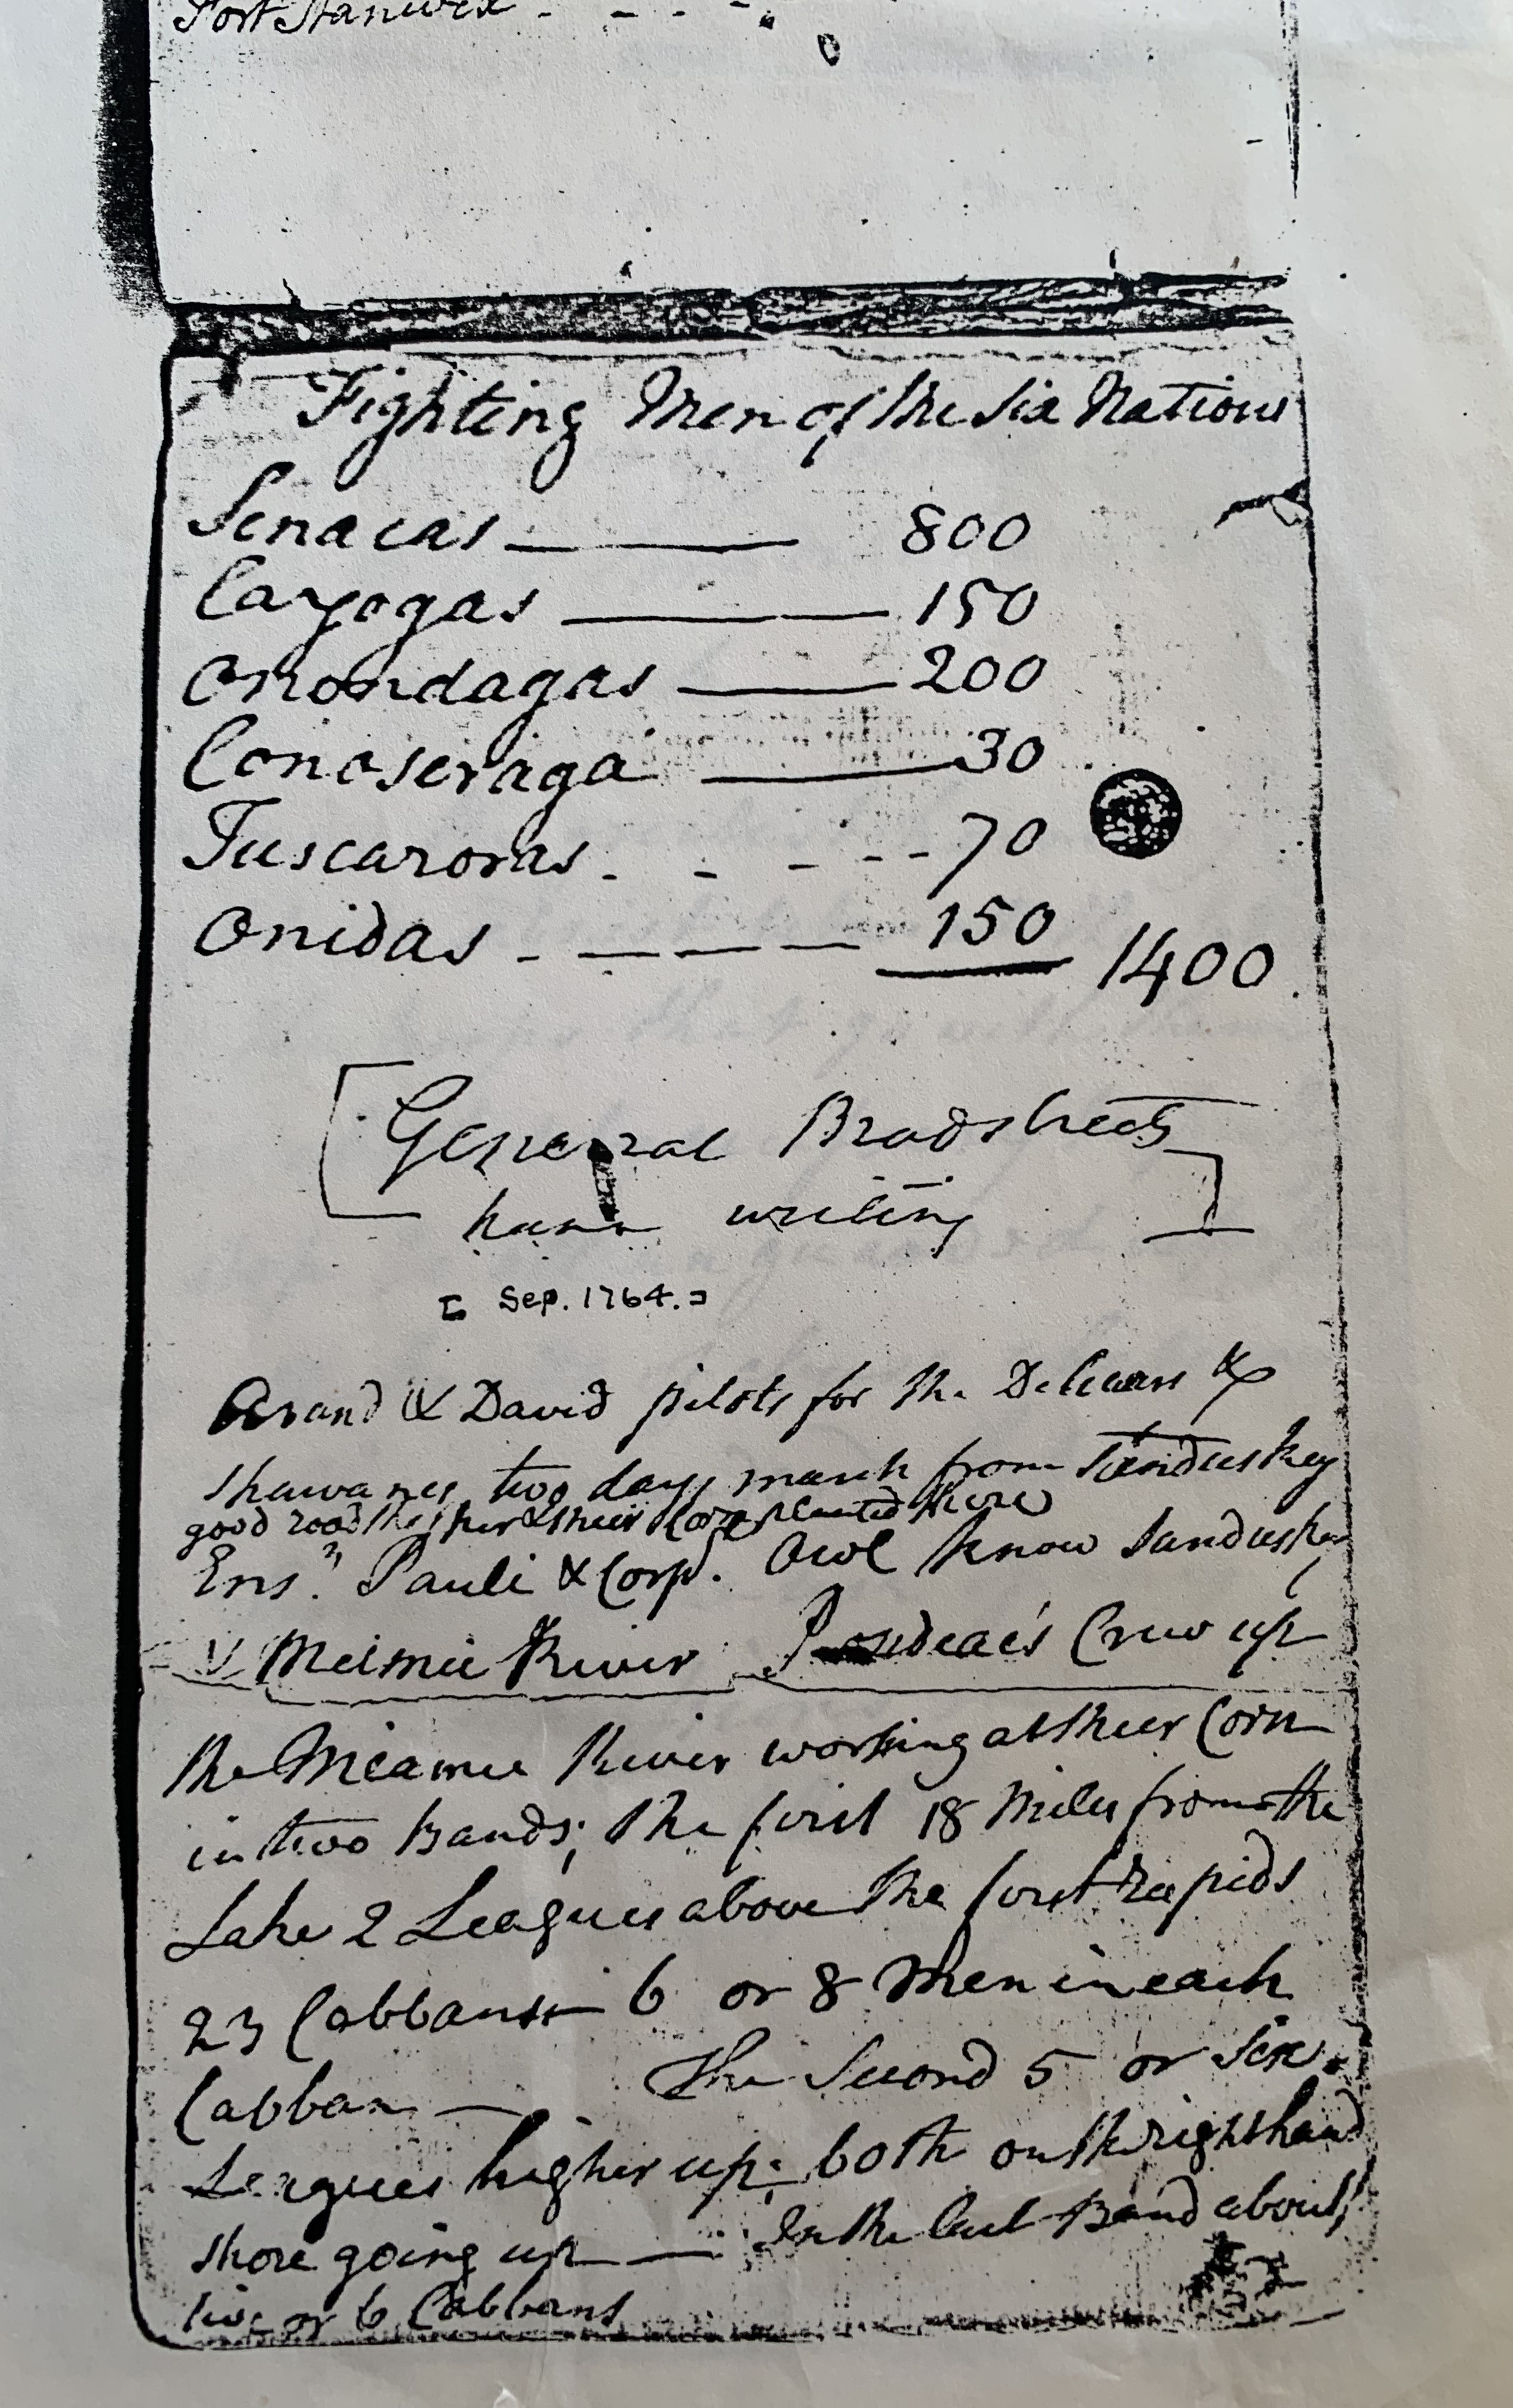 Fort Stanwix - - - -
0
Fighting Men of the Six Nations
Senacas — 800
Cayogas — 150
Onondagas — 200
Conoseraga — 30
Tuscaroras. - - - - 70
Onidas - — — — 150 1400
[General Bradstreets
hand writing]
[Sep. 1764.]
& David pilots for the Delewars &
Shawanes two days march from Sandusky
good road their Corn planted there
Ensn. Pauli & Corpl. Owl know Sandusky
Meimie River Crew up
the Meamie River working at their Corn
in two Bands; the first 18 Miles from the
Lake 2 Leagues above the first Rapids
23 Cabbans 6 or 8 Men in each
Cabban — The Second 5 or Six
Leagues higher up; both on the right hand
shore going up — In the last Band about
five or 6 Cabbans